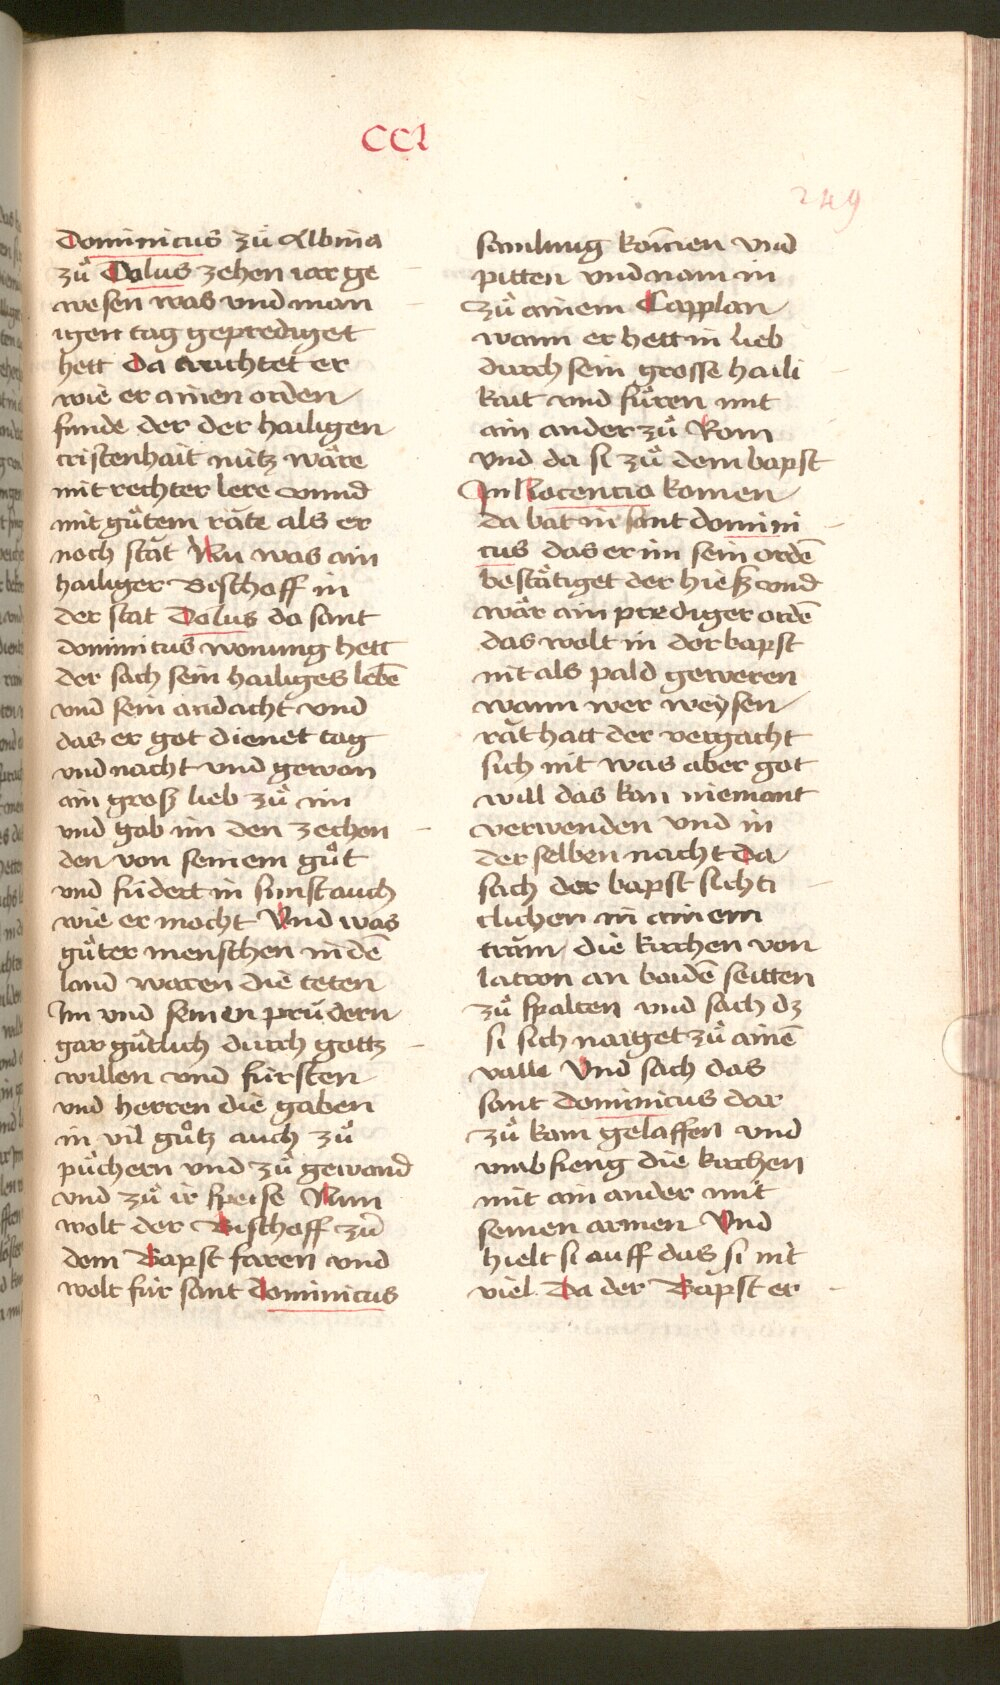 CCI
249
Dominicus zuͦ Albina
zuͦ Tolus zehen iar ge
wesen was vnd man
igen tag geprediget
hett Da trachtet er
wie er ainen orden
funde der der hailigen
cristenhait nütz wäre
mit rechter lere vnnd
mit guͦtem räte als er
noch stät Nu was ain
hailiger Bischoff in
der stat Tolus da sant
dominicus wonung hett
der sach sein hailiges lebē
vnd sein andacht vnd
das er got dienet tag
vnd nacht vnd gewan
ain grosz lieb zuͦ im
vnd gab im den zechen
den von seinem guͦt
vnd fudert in sunst auch
wie er mocht Vnd was
guͦter menschen in dē
land waren die teten
Im vnd seinen pruͤdern
gar guͤtlich durch gottz
willen vnd fürsten
vnd herren die gaben
in vil guͦtz auch zuͦ
puͤchern vnd zuͦ gewand
vnd zuͦ ir speise Nun
wolt der Bischoff zuͦ
dem Bapst faren vnd
wolt für sant Dominicus
samlung komen vnd
pitten vnd nam in
zuͦ ainem Capplan
wann er hett in lieb
durch sein grosse haili
kait vnd fuͦren mit
ain ander zuͦ Rom
vnd da si zuͦ dem bapst
Innocencio komen
da bat in sant domini
cus das er im sein ordē
bestätiget der hiesz vnd
wär ain prediger ordē
das wolt in der bapst
nit als pald geweren
wann wer weysen
rät hatt der vergacht
sich nit was aber got
will das kan niemant
verwenden vnd in
der selben nacht da
sach der bapst sichti
clichen in ainem
tram die kirchen von
latron an baidē seitten
zuͦ spalten vnd sach dz
si sich naiget zuͦ ainē
valle Vnd sach das
sant dominicus dar
zuͦ kam gelaffen vnd
vmbfieng die kirchen
mit ain ander mit
seinen armen Vnd
hielt si auff das si nit
viel Da der Bapst er